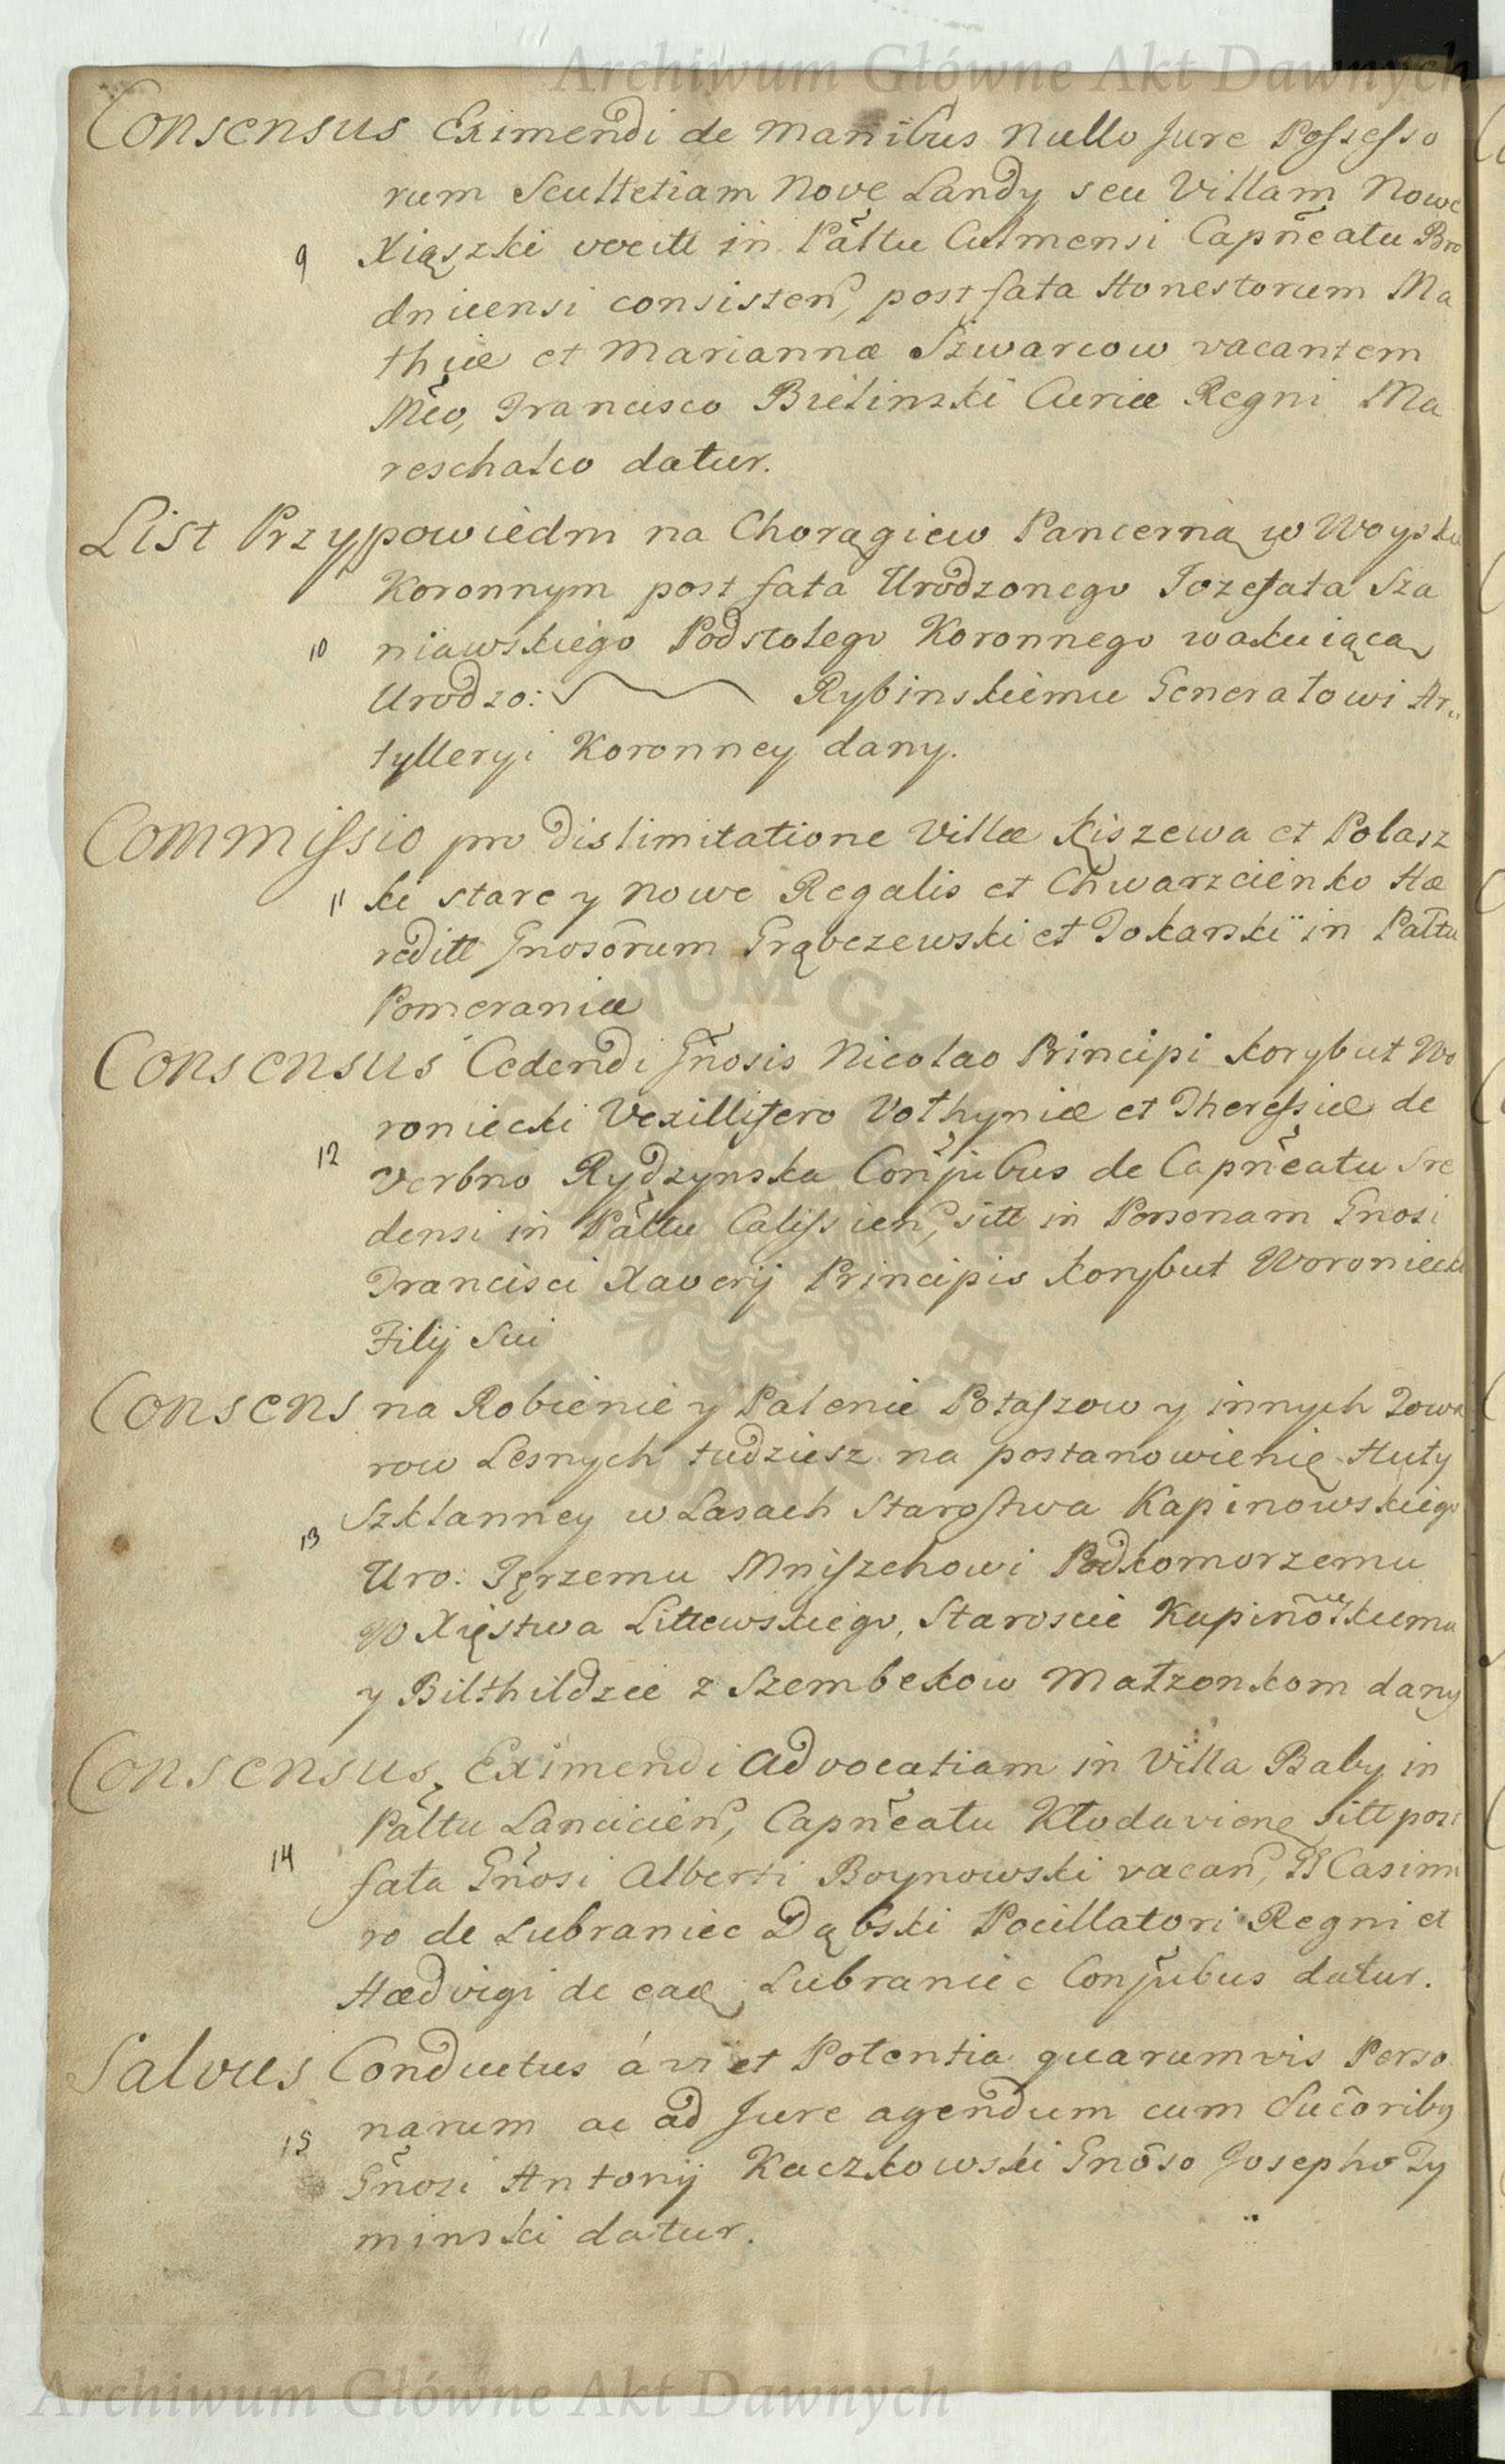 Archiwum Główne Akt Dawnych
Consensus Eximendi de manibus Nullo Jure Possesso
rum Scultetiam Nove Landy seu Villam Nowe
9 Xiąszki vocitt in Pāltu Culmensi Capn̄eatu Bro
dnicensi consisten, post fata Honestorum Ma
thiæ et Mariannæ Szwarcow vacantem
Mco, Francisco Bielinski Curiæ Regni Ma
reschalco datur.
List Przypowiedni na Chorągiew Pancerną w Woysku
Koronnym post fata Urodzonego Jozefata Sza
10 niawskiego Podstolego Koronnego wakuiącą
Urodzo: Rybinskiemu Generałowi Ar„
tylleryi Koronney dany.
Commissio pro dislimitatione Villæ Kiszewa et Polasz
11 ki stare y Nowe Regalis et Chwarzcienko Hæ
reditt Gnosōrum Grąbczewski et Tokarski in Pałtu
Pomeraniæ
Consensus Cedendi Gn̄osis Nicolao Principi Korybut Wo
roniecki Vexillifero Vołhyniæ et Theressiæ de
12 Verbno Rydzynska Conjubus de Capn̄eatu Sre
densi in Pāltu Calissien, sitt in Personam Gnosi
Francisci Xaverij Principis Korybut Woroniecki
Filij Sui
Consens na Robienie y Palenie Potaszow y innych Towa
row Lesnych tudziesz na postanowienie Huty
13 Szklanney w Lasach Starostwa Kapinowskiego
Uro: Jerzemu Mniszchowi Podkomorzemu
W Xięstwa Littewskiego, Staroscie Kapinōwskiemu
y Bilthildzie z Szembekow Małzonkom dany
Consensus Eximendi Advocatiam in Villa Baby in
Pāltu Lancicien, Capn̄eatu Kłodaviens sitt post
14 fata Gn̄osi Alberti Boynowski vacan, GG Casimi
ro de Lubraniec Dąbski Pocillatori Regni et
Hædvigi de eadē Lubraniec Conjubus datur.
Salvus Conductus á vi et Potentia quarumvis Perso
narum ac ad Jure agendum cum Sucōriby
15 Gn̄osi Antonij Kaczkowski Gnōso Josepho Ty
minski datur.
Archiwum Główne Akt Dawnych